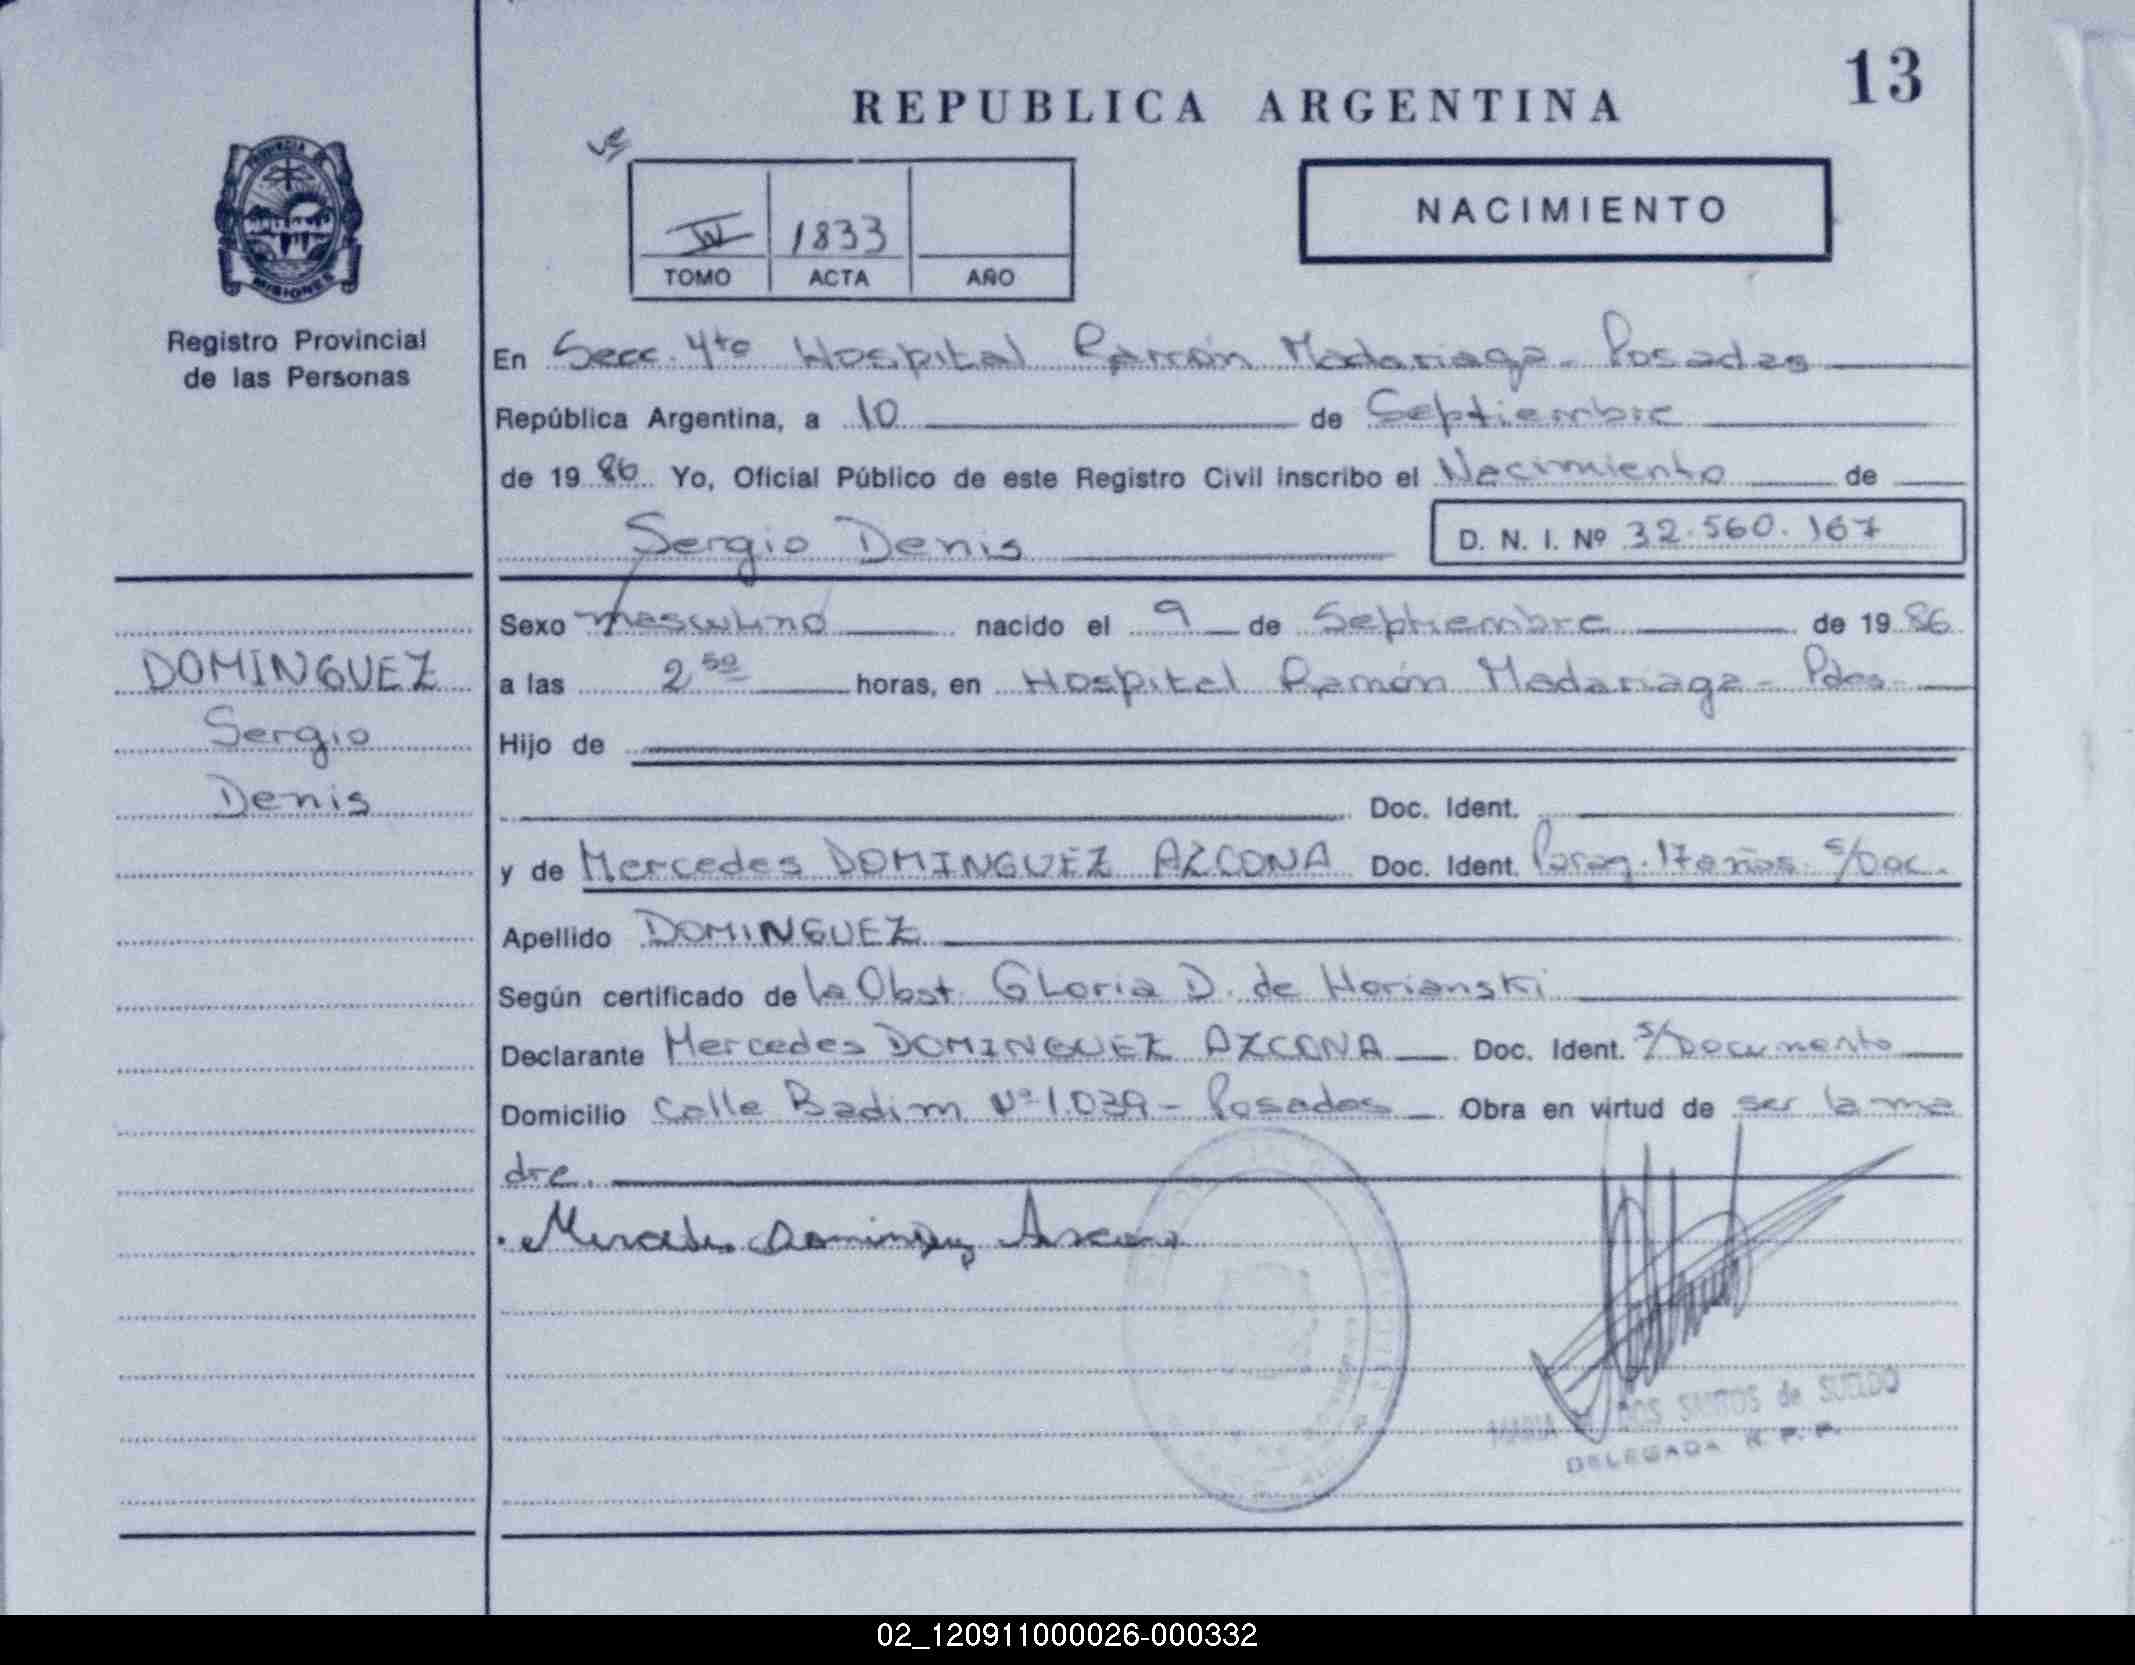 13
REPUBLICA ARGENTINA
NACIMIENTO
IV 1833
TOMO ACTA AÑO
PROVINCIA DE
MISIONES
Registro Provincial
de las Personas
En Secc. 4to Hospital Ramón Madariaga - Posadas
República Argentina, a 10 de Septiembre
de 19 86 Yo, Oficial Público de este Registro Civil inscribo el Nacimiento de
Sergio Denis D. N. I. Nº 32.560.167
Sexo masculino nacido el 9 de Septiembre de 19 86
DOMINGUEZ
Sergio
Denis
a las 2 50 horas, en Hospital Ramón Madariaga - Pdas -
Hijo de
Doc. Ident.
y de Mercedes DOMINGUEZ AZCONA Doc. Ident. Parag. 17 años. s/Doc.
Apellido DOMINGUEZ
Según certificado de la Obst. Gloria D. de Horianski
Declarante Mercedes DOMINGUEZ AZCONA Doc. Ident. s/Documento
Domicilio Calle Badim Nº 1.039 - Posadas Obra en virtud de ser la ma
dre.
Mercedes Dominguez Azcona
MARIA DOS SANTOS de SUELDO
DELEGADA R. P. P.
02_120911000026-000332